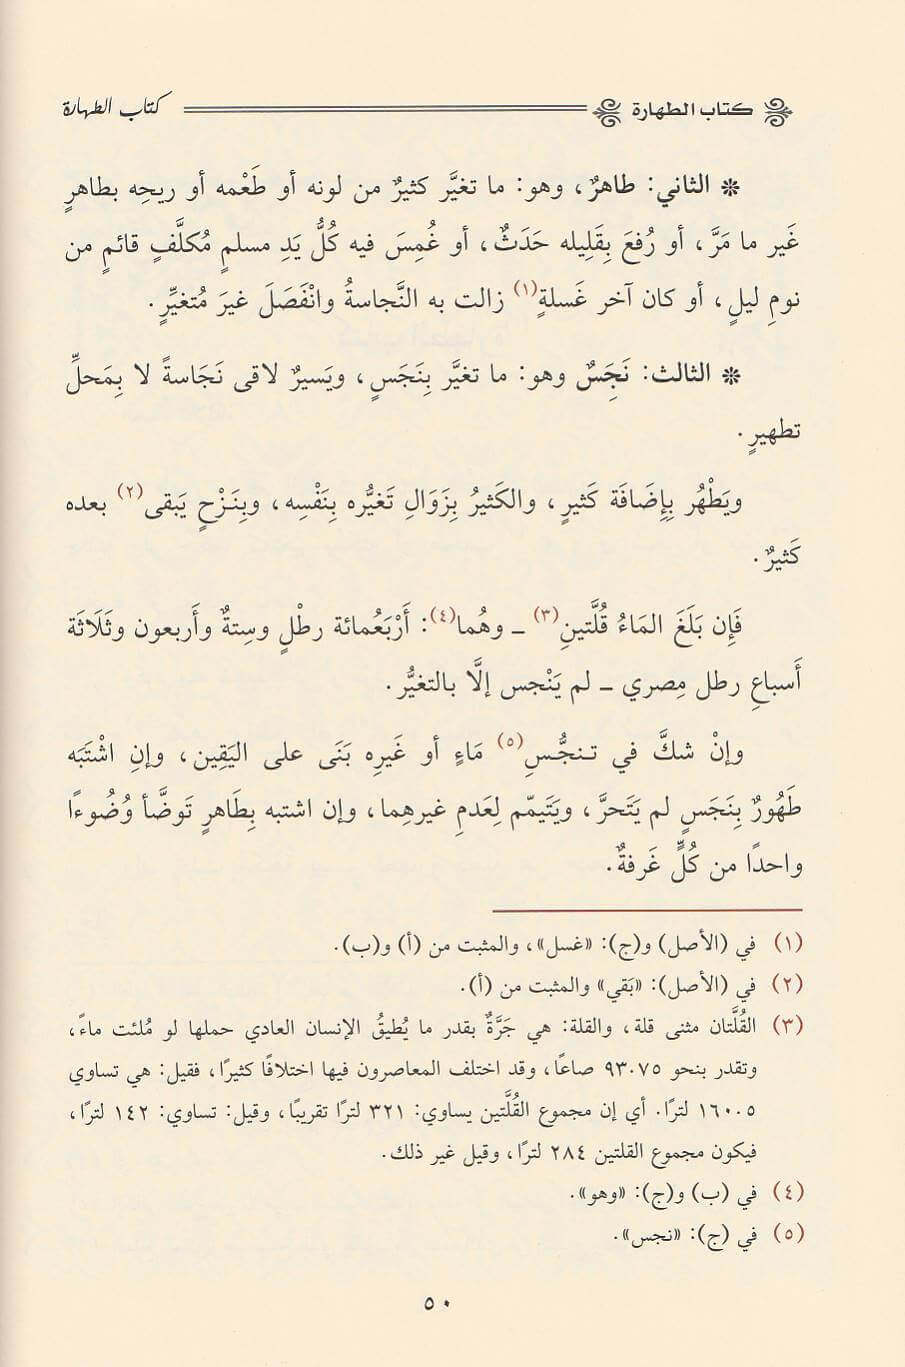 كتاب الطهارة كتاب الطهارة
* الثاني: طاهرٌ، وهو: ما تغيَّر كثيرٌ من لونه أو طَعْمه أو ريحِه بطاهرٍ
غَير ما مَرَّ، أو رُفعَ بِقَلِيله حَدَثٌ، أو غُمِسَ فيه كُلُّ يَدِ مسلمٍ مُكلَّفٍ قائمٍ من
نومِ ليلٍ، أو كان آخر غَسلةٍ(١) زالت به النَّجاسةُ وانْفَصَلَ غيرَ مُتغيِّرٍ.
* الثالث: نَجِسٌ وهو: ما تغيَّر بِنَجَسٍ، ويَسيرٌ لاقى نَجَاسةً لا بِمَحلِّ
تطهيرٍ.
ويَطْهُر بِإِضَافَة كَثيرٍ، والكَثيرُ بِزَوَالِ تَغيُّره بِنَفْسِه، وبِنَزْحٍ يَبقى(٢) بعده
كَثيرٌ.
فَإِن بَلَغَ المَاءُ قُلَّتينِ(٣) ـ وهُما(٤): أَرْبَعُمائة رطْلٍ وسِتةٌ وأَربعون وثَلَاثَة
أَسباعِ رطل مِصري ـ لم يَنْجس إلَّا بالتغيُّر.
وإنْ شكَّ في تـنجُّسِ(٥) مَاءٍ أو غَيرِه بَنَى على اليَقِين، وإنِ اشْتَبَه
طَهُورٌ بِنَجَسٍ لم يَتَحرَّ، ويَتَيمّم لِعَدمِ غيرهِما، وإن اشتبه بِطَاهرٍ تَوضَّأ وُضُوءًا
واحدًا من كُلٍّ غَرفةٌ.
(١) في (الأصل) و(ج): «غسل»، والمثبت من (أ) و(ب).
(٢) في (الأصل): «بَقي» والمثبت من (أ).
(٣) القُلَّتان مثنى قلة، والقلة: هي جَرَّةٌ بقدر ما يُطيقُ الإنسان العادي حملها لو مُلئت ماءً،
وتقدر بنحو ٩٣.٧٥ صاعًا، وقد اختلف المعاصرون فيها اختلافًا كثيرًا، فقيل: هي تساوي
١٦٠.٥ لترًا. أي إن مجموع القُلَّتين يساوي: ٣٢١ لترًا تقريبًا، وقيل: تساوي: ١٤٢ لترًا،
فيكون مجموع القلتين ٢٨٤ لترًا، وقيل غير ذلك.
(٤) في (ب) و(ج): «وهو».
(٥) في (ج): «نجس».
٥٠